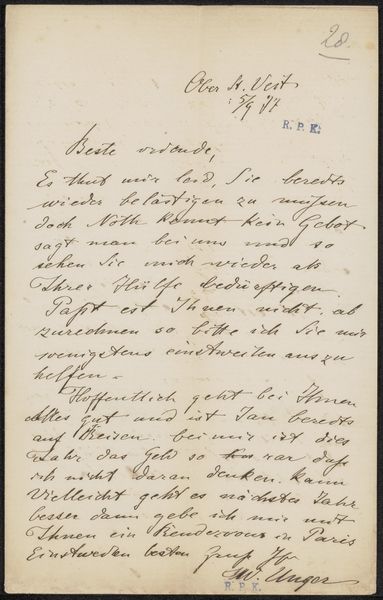 28.
Ober St. Veit
5/9 77
R. P. K.
Beste vriende,
Es thut mir leid, Sie beredts
wieder belästigen zu müssen
doch Noth kennt kein Gebot
sagt man bei uns und so
sehen Sie mich wieder als
Ihrer Hülfe bedürftigen.
Paßt est Ihnen nicht ab
zurechnen so bitte ich Sie mir
wenigstens einstweilen aus zu
helfen –
Hoffentlich geht bei Ihnen
alles gut und ist Jan beredts
auf Reisen. bei mir ist dies
Jahr das Geld so rar daß
ich nicht daran denken kann
Vielleicht geht es nächstes Jahr
besser dann gebe ich mir mit
Ihnen ein Rendezvous in Paris
Einstweilen besten Gruß Ihr
W. Unger
R. P. K.